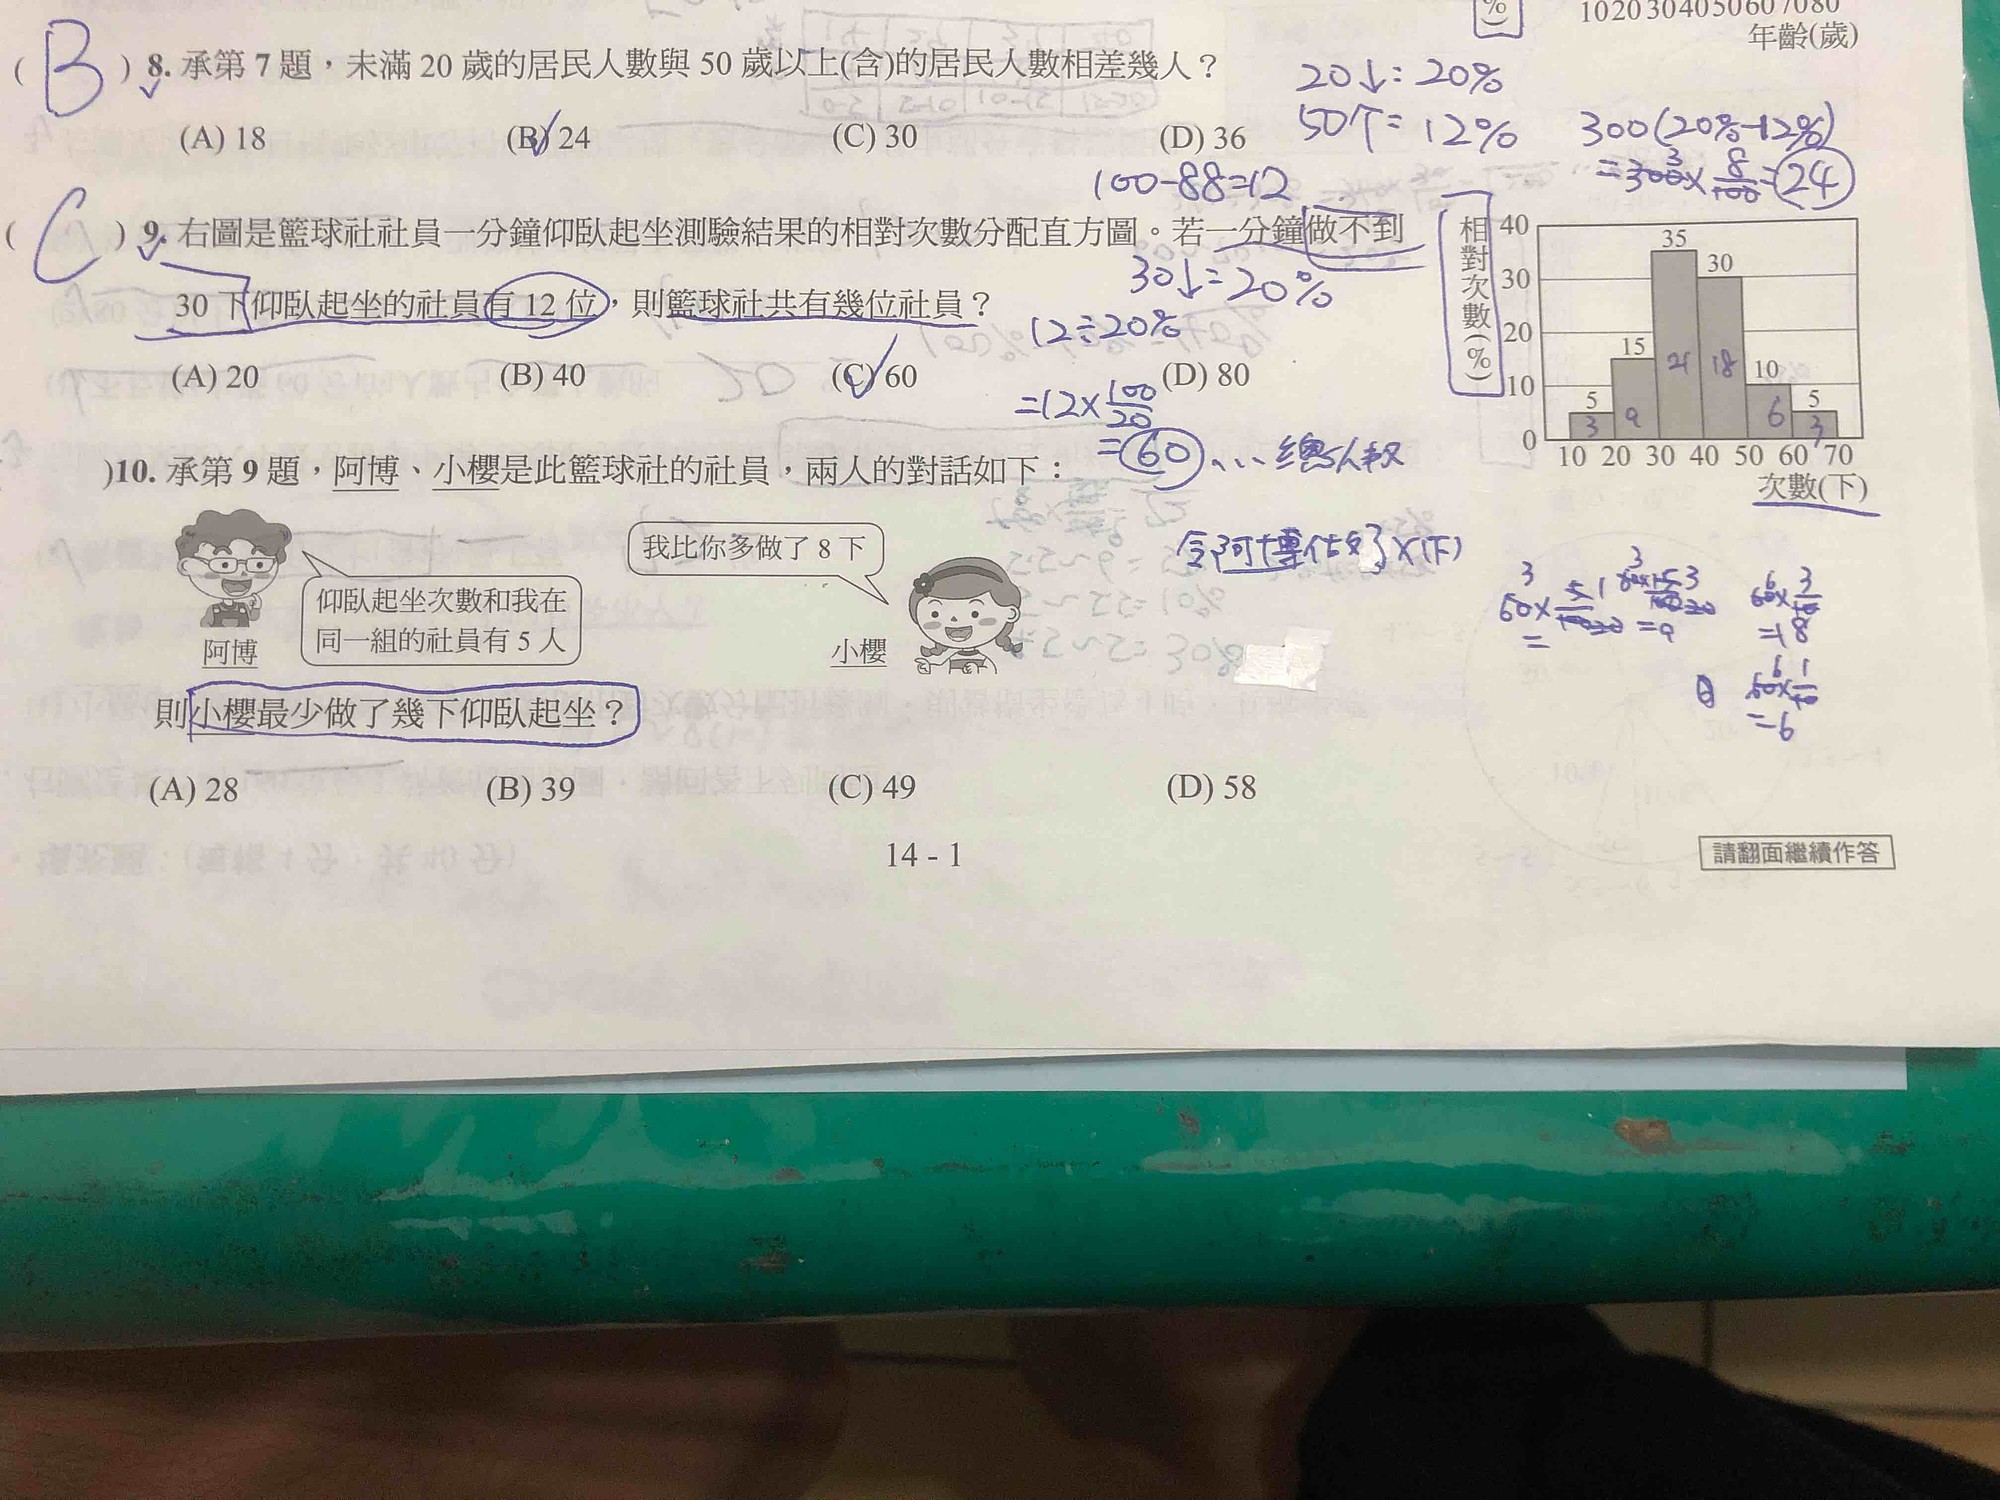 %)
10 20 30 40 50 60 70 80
年齡(歲)
( B ) 8. 承第 7 題，未滿 20 歲的居民人數與 50 歲以上(含)的居民人數相差幾人？
(A) 18 (B) 24 (C) 30 (D) 36
20↓: 20%
50↑= 12%
300(20%-12%)
=300×8/100=24
3
100-88=12
( C ) 9. 右圖是籃球社社員一分鐘仰臥起坐測驗結果的相對次數分配直方圖。若一分鐘做不到
30 下仰臥起坐的社員有 12 位，則籃球社共有幾位社員？
(A) 20 (B) 40 (C) 60 (D) 80
30↓=20%
12÷20%
=12×100/20
=60 … 總人數
相對次數(%)
40
30
20
10
0
5 15 35 30 10 5
3 9 21 18 6 3
10 20 30 40 50 60 70
次數(下)
)10. 承第 9 題，阿博、小櫻是此籃球社的社員，兩人的對話如下：
仰臥起坐次數和我在
同一組的社員有 5 人
阿博
我比你多做了 8 下
小櫻
令阿博做了X(下)
=9
60×3/10
=18
60×1/10
=6
則小櫻最少做了幾下仰臥起坐？
(A) 28 (B) 39 (C) 49 (D) 58
14 - 1
請翻面繼續作答